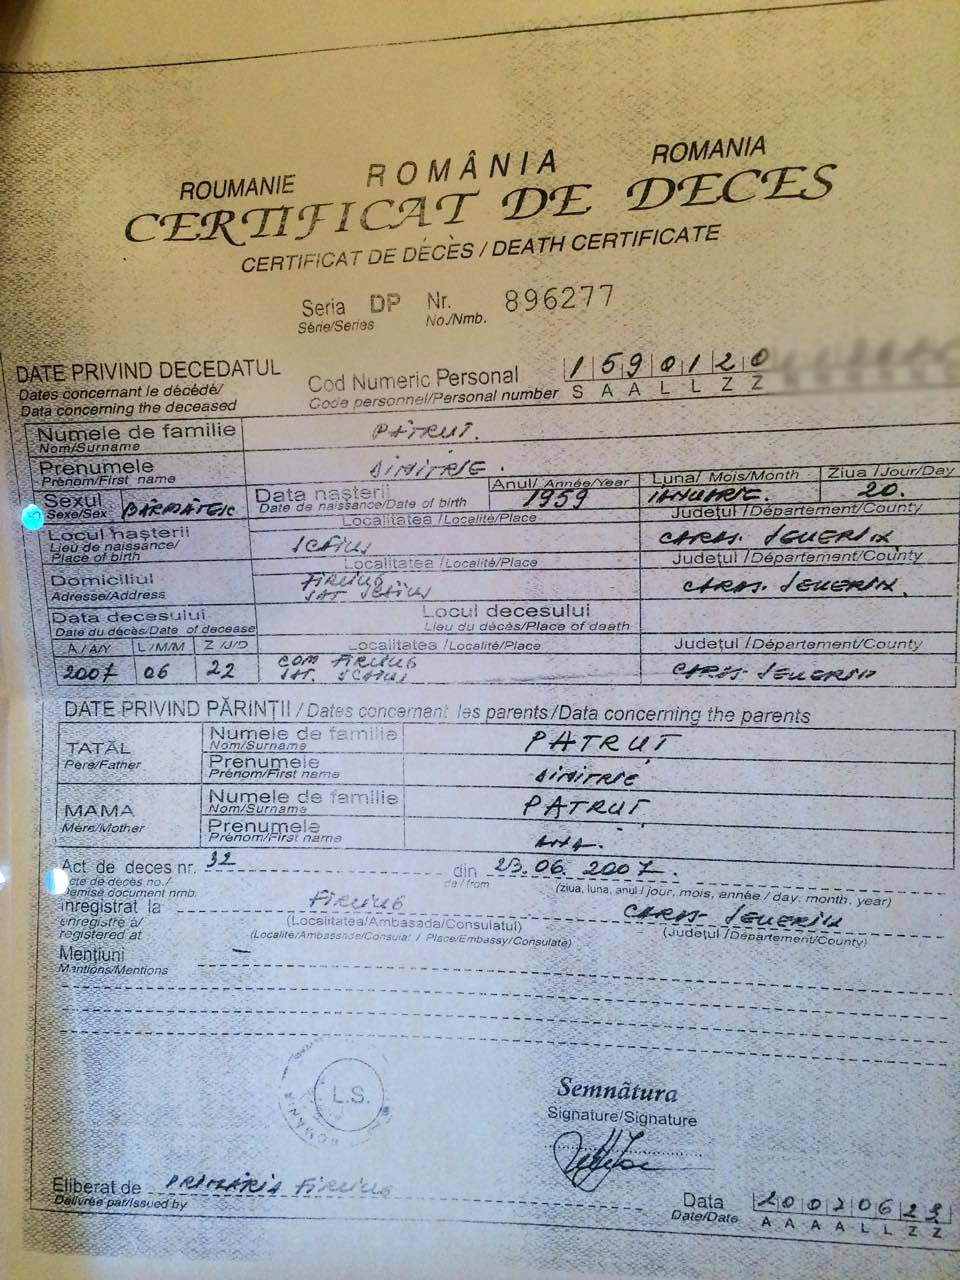 ROUMANIE ROMÂNIA ROMANIA
CERTIFICAT DE DECES
CERTIFICAT DE DÉCÈS / DEATH CERTIFICATE
Seria DP Nr. 896277
Série/Series No./Nmb.
DATE PRIVIND DECEDATUL
Dates concernant le décédé/
Data concerning the deceased
Cod Numeric Personal 1 5 9 0 1 2 0
Code personnel/Personal number S A A L L Z Z
Numele de familie PĂTRUȚ.
Nom/Surname
Prenumele DIMITRIE.
Prénom/First name
Sexul BĂRBĂTESC Data nașterii Anul/ Année/Year Luna/ Mois/Month Ziua /Jour/Day
Sexe/Sex Date de naissance/Date of birth 1959 IANUARIE. 20.
Locul nașterii Localitatea /Localité/Place Județul /Département/County
Lieu de naissance/
Place of birth SCĂIUȘ CARAȘ-SEVERIN
Domiciliul Localitatea /Localité/Place Județul /Département/County
Adresse/Address FÎRLIUG CARAȘ-SEVERIN
SAT. SCĂIUȘ
Data decesului Locul decesului
Date du décès/Date of decease Lieu du décès/Place of death
A./A/Y L./M/M Z./J/D Localitatea /Localité/Place Județul /Département/County
2007 06 22 COM FÎRLIUG CARAȘ-SEVERIN
SAT. SCĂIUȘ
DATE PRIVIND PĂRINȚII / Dates concernant les parents/Data concerning the parents
TATĂL Numele de familie PATRUT
Père/Father Nom/Surname
Prenumele DIMITRIE
Prénom/First name
MAMA Numele de familie PATRUT
Mère/Mother Nom/Surname
Prenumele ANA.
Prénom/First name
Act de deces nr. 32 din 23.06.2007.
Acte de décès no./ de/from (ziua, luna, anul / jour, mois, année / day, month, year)
demise document nmb.
înregistrat la FÎRLIUG CARAȘ-SEVERIN
enregistré à/ (Localitatea/Ambasada/Consulatul) (Județul /Département/County)
registered at (Localité/Ambassade/Consulat / Place/Embassy/Consulate)
Mențiuni –
Mantions/Mentions
L.S.
ROMÂNIA
Semnătura
Signature/Signature
Eliberat de PRIMĂRIA FÎRLIUG
Délivrée par/Issued by
Data 2 0 0 7 0 6 2 3
Date/Date A A A A L L Z Z